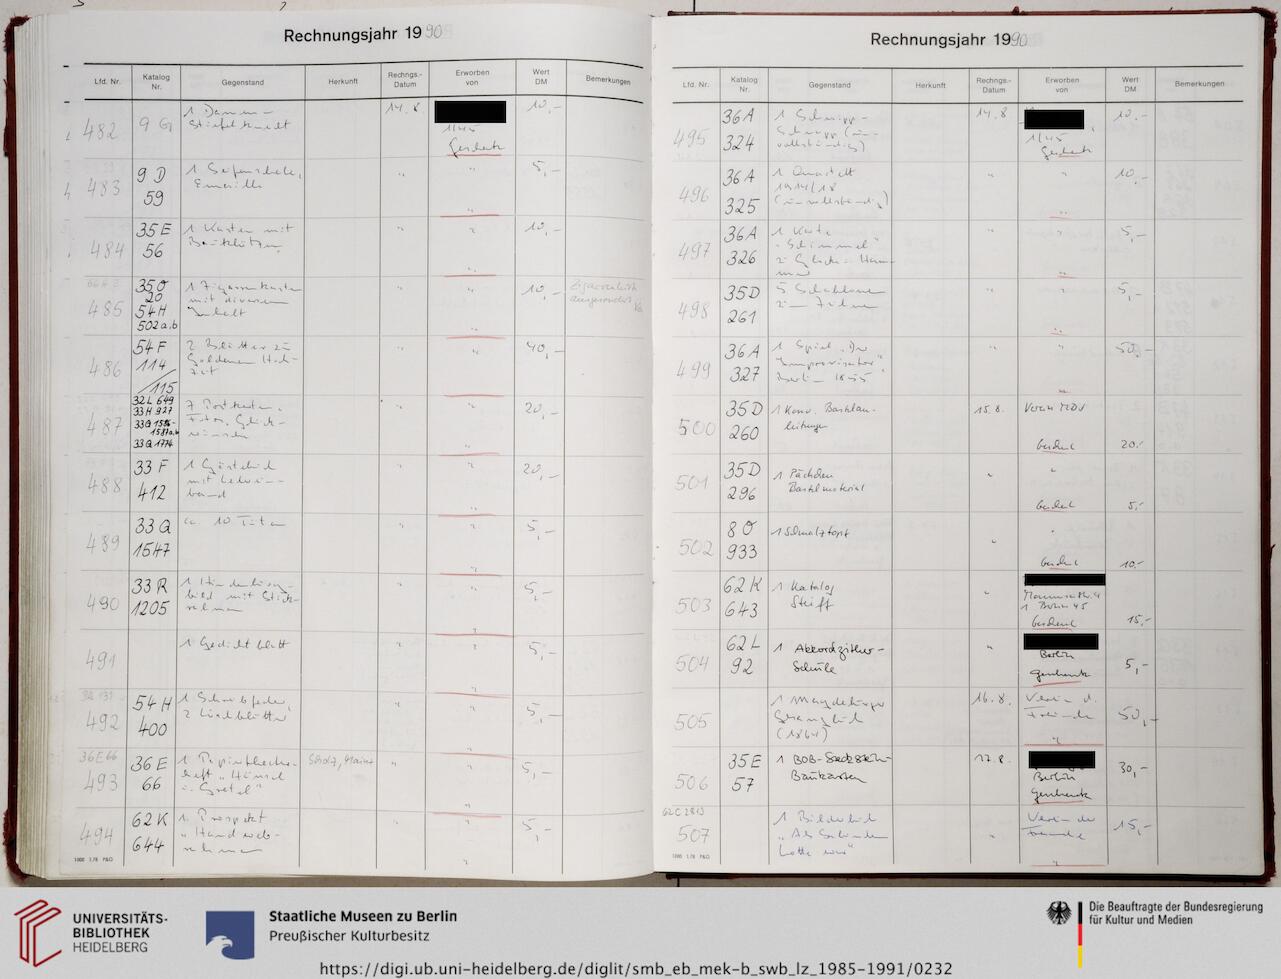 Rechnungsjahr 1990
Lfd. Nr. Katalog Nr. Gegenstand Herkunft Rechngs.-Datum Erworben von Wert DM Bemerkungen
482 9 G 1 Damen-Stiefelknecht 14.8. 1/45 Geschenk 10,-
483 9 D 59 1 Seifenschale, Emaille " " 5,-
484 35 E 56 1 Kasten mit Bauklötzen " " 10,-
485 35 O 20 54 H 502 a,b 1 Zigarrenkasten mit diversem Inhalt " " 10,- Zigarrenkiste ausgesondert
486 54 F 114/115 2 Blätter zu Goldenen Hochzeit " " 40,-
487 32 L 649 33 H 927 33 Q 1586-1587 a,b 33 Q 1774 7 Postkarten, Fotos, Glückwünsche " " 20,-
488 33 F 412 1 Gästebuch mit Ledereinband " " 20,-
489 33 Q 1547 ca. 10 Tüten " " 5,-
490 33 R 1205 1 Hindenburgbild mit Stickrahmen " " 5,-
491 1 Gedichtblatt " " 5,-
492 54 H 400 1 Schreibfeder, 2 Löschblätter " " 5,-
36 E 66
493 36 E 66 1 "Hänsel u. Gretel" Scholz, Mainz " " 5,-
494 62 K 644 1 Prospekt "Handwebrahmen " " 5,-
1000 1.78 P&O
Rechnungsjahr 1990
Lfd. Nr. Katalog Nr. Gegenstand Herkunft Rechngs.-Datum Erworben von Wert DM Bemerkungen
495 36 A 324 1 Schnipp-Schnapp (unvollständig) 14.8 1/45 Geschenk 10,-
496 36 A 325 1 Quartett 1914/18 (unvollständig) " " 10,-
497 36 A 326 1 Karte "Schimmel" u. Glocke u. Hammer " " 5,-
498 35 D 261 5 Schablonen zum Zeichnen " " 5,-
499 36 A 327 1 Spiel "Der Improvisator" Berlin 1855 " " 50,-
500 35 D 260 1 Konv. Bastelanleitungen 15.8. Verein MDV Geschenk 20.-
501 35 D 296 1 Päckchen Bastelmaterial " " Geschenk 5,-
502 8 O 933 1 Schmalztopf " " Geschenk 10.-
503 62 K 643 1 Katalog Steiff " 1 Berlin 45 Geschenk 15,-
504 62 L 92 1 Akkordzither-Schule " Berlin Geschenk 5,-
505 1 Magdeburger Gesangbuch (1864) 16.8. Verein d. Freunde " 50,-
506 35 E 57 1 BOB- Baukasten 17.8. Berlin Geschenk 30,-
62 C 2813
507 1 Bilderbuch "Als " " Verein der Freunde " 15,-
1000 1.78 P&O
UNIVERSITÄTS-
BIBLIOTHEK
HEIDELBERG
Staatliche Museen zu Berlin
Preußischer Kulturbesitz
Die Beauftragte der Bundesregierung
für Kultur und Medien
https://digi.ub.uni-heidelberg.de/diglit/smb_eb_mek-b_swb_lz_1985-1991/0232